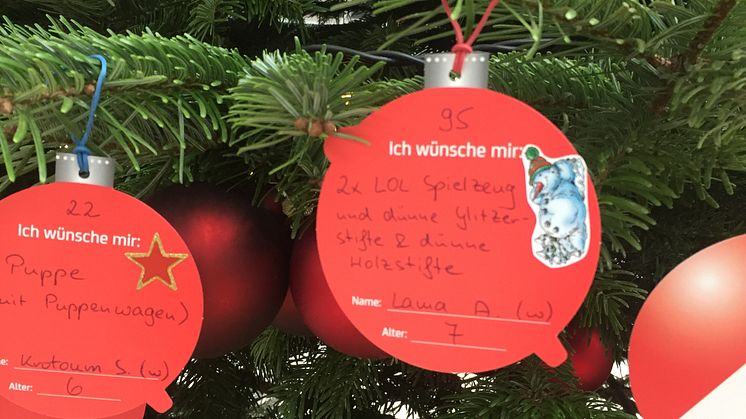 22
Ich wünsche mir:
Puppe
mit Puppenwagen)
Krotoum S. (w)
Alter: 6
95
Ich wünsche mir:
2x LOL Spielzeug
und dünne Glitzer-
stifte & dünne
Holzstifte
Name: Lama A. (w)
Alter: 7